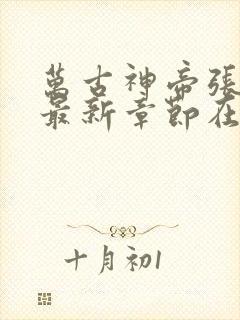 萬古神帝張
最新章節在
十月初1